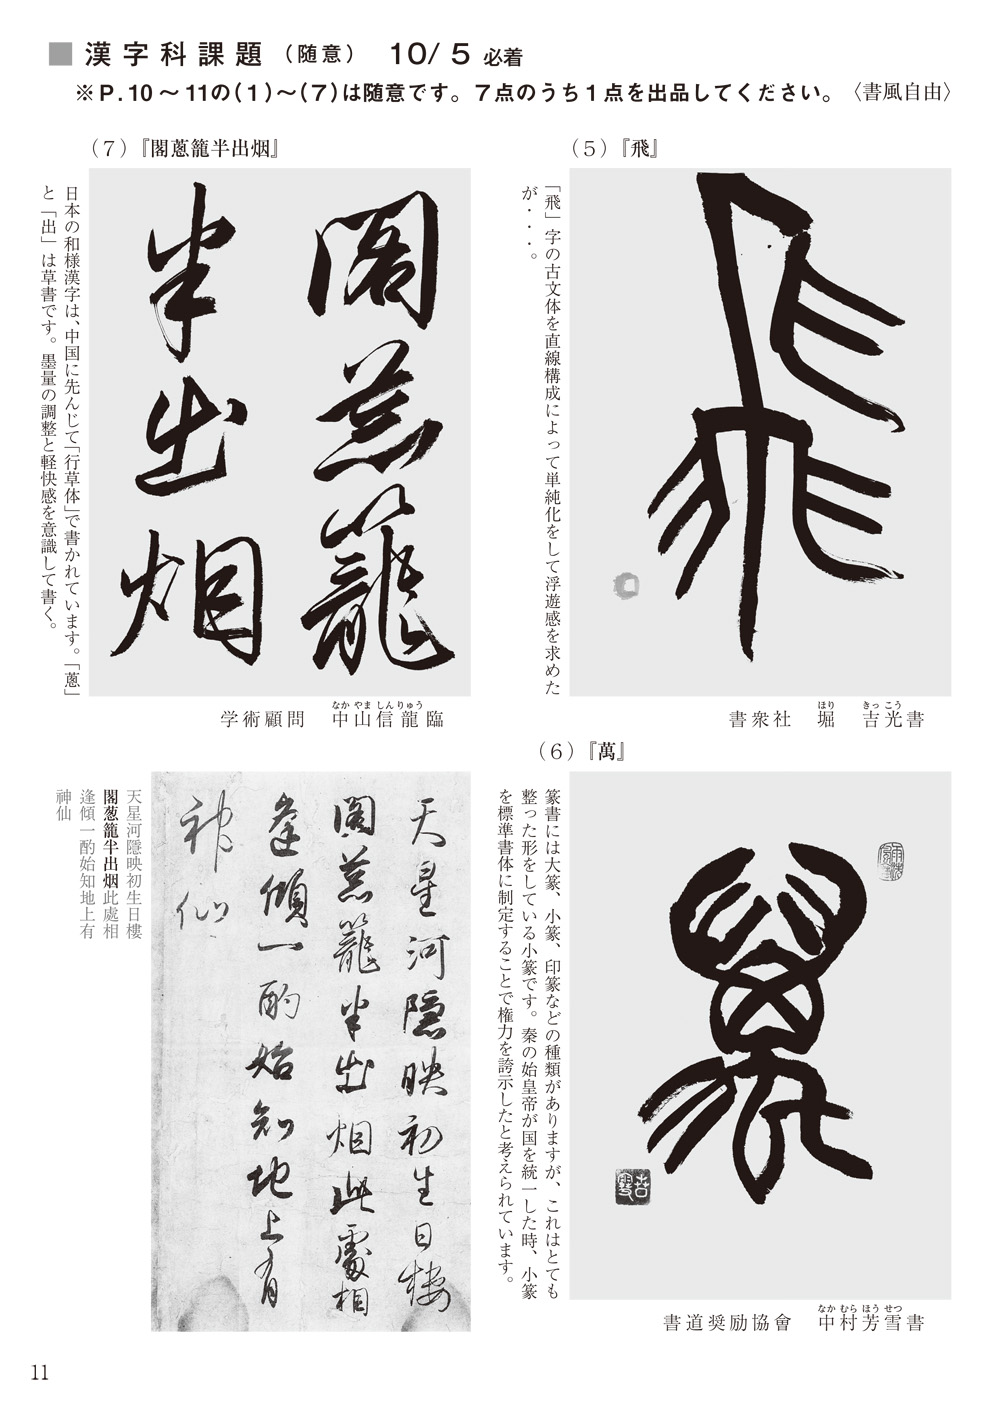 ■漢字科課題（随意） 10/5 必着
※P.10～11の（1）～（7）は随意です。7点のうち1点を出品してください。〈書風自由〉
（5）『飛』
飛
「飛」字の古文体を直線構成によって単純化をして浮遊感を求めた
が・・・。
書衆社 堀 吉光書
ほり きっこう
（6）『萬』
萬
篆書には大篆、小篆、印篆などの種類がありますが、これはとても
整った形をしている小篆です。秦の始皇帝が国を統一した時、小篆
を標準書体に制定することで権力を誇示したと考えられています。
書道奨励協會 中村芳雪書
なか むら ほう せつ
（7）『閣蔥籠半出烟』
閣蔥籠
半出烟
日本の和様漢字は、中国に先んじて「行草体」で書かれています。「蔥」
と「出」は草書です。墨量の調整と軽快感を意識して書く。
学術顧問 中山信龍臨
なか やま しん りゅう
天星河隱映初生日樓
閣蔥籠半出烟此處相
逢傾一酌始知地上有
神仙
天星河隠映初生日樓
閣葱籠半出烟此處相
逢傾一酌始知地上有
神仙
11